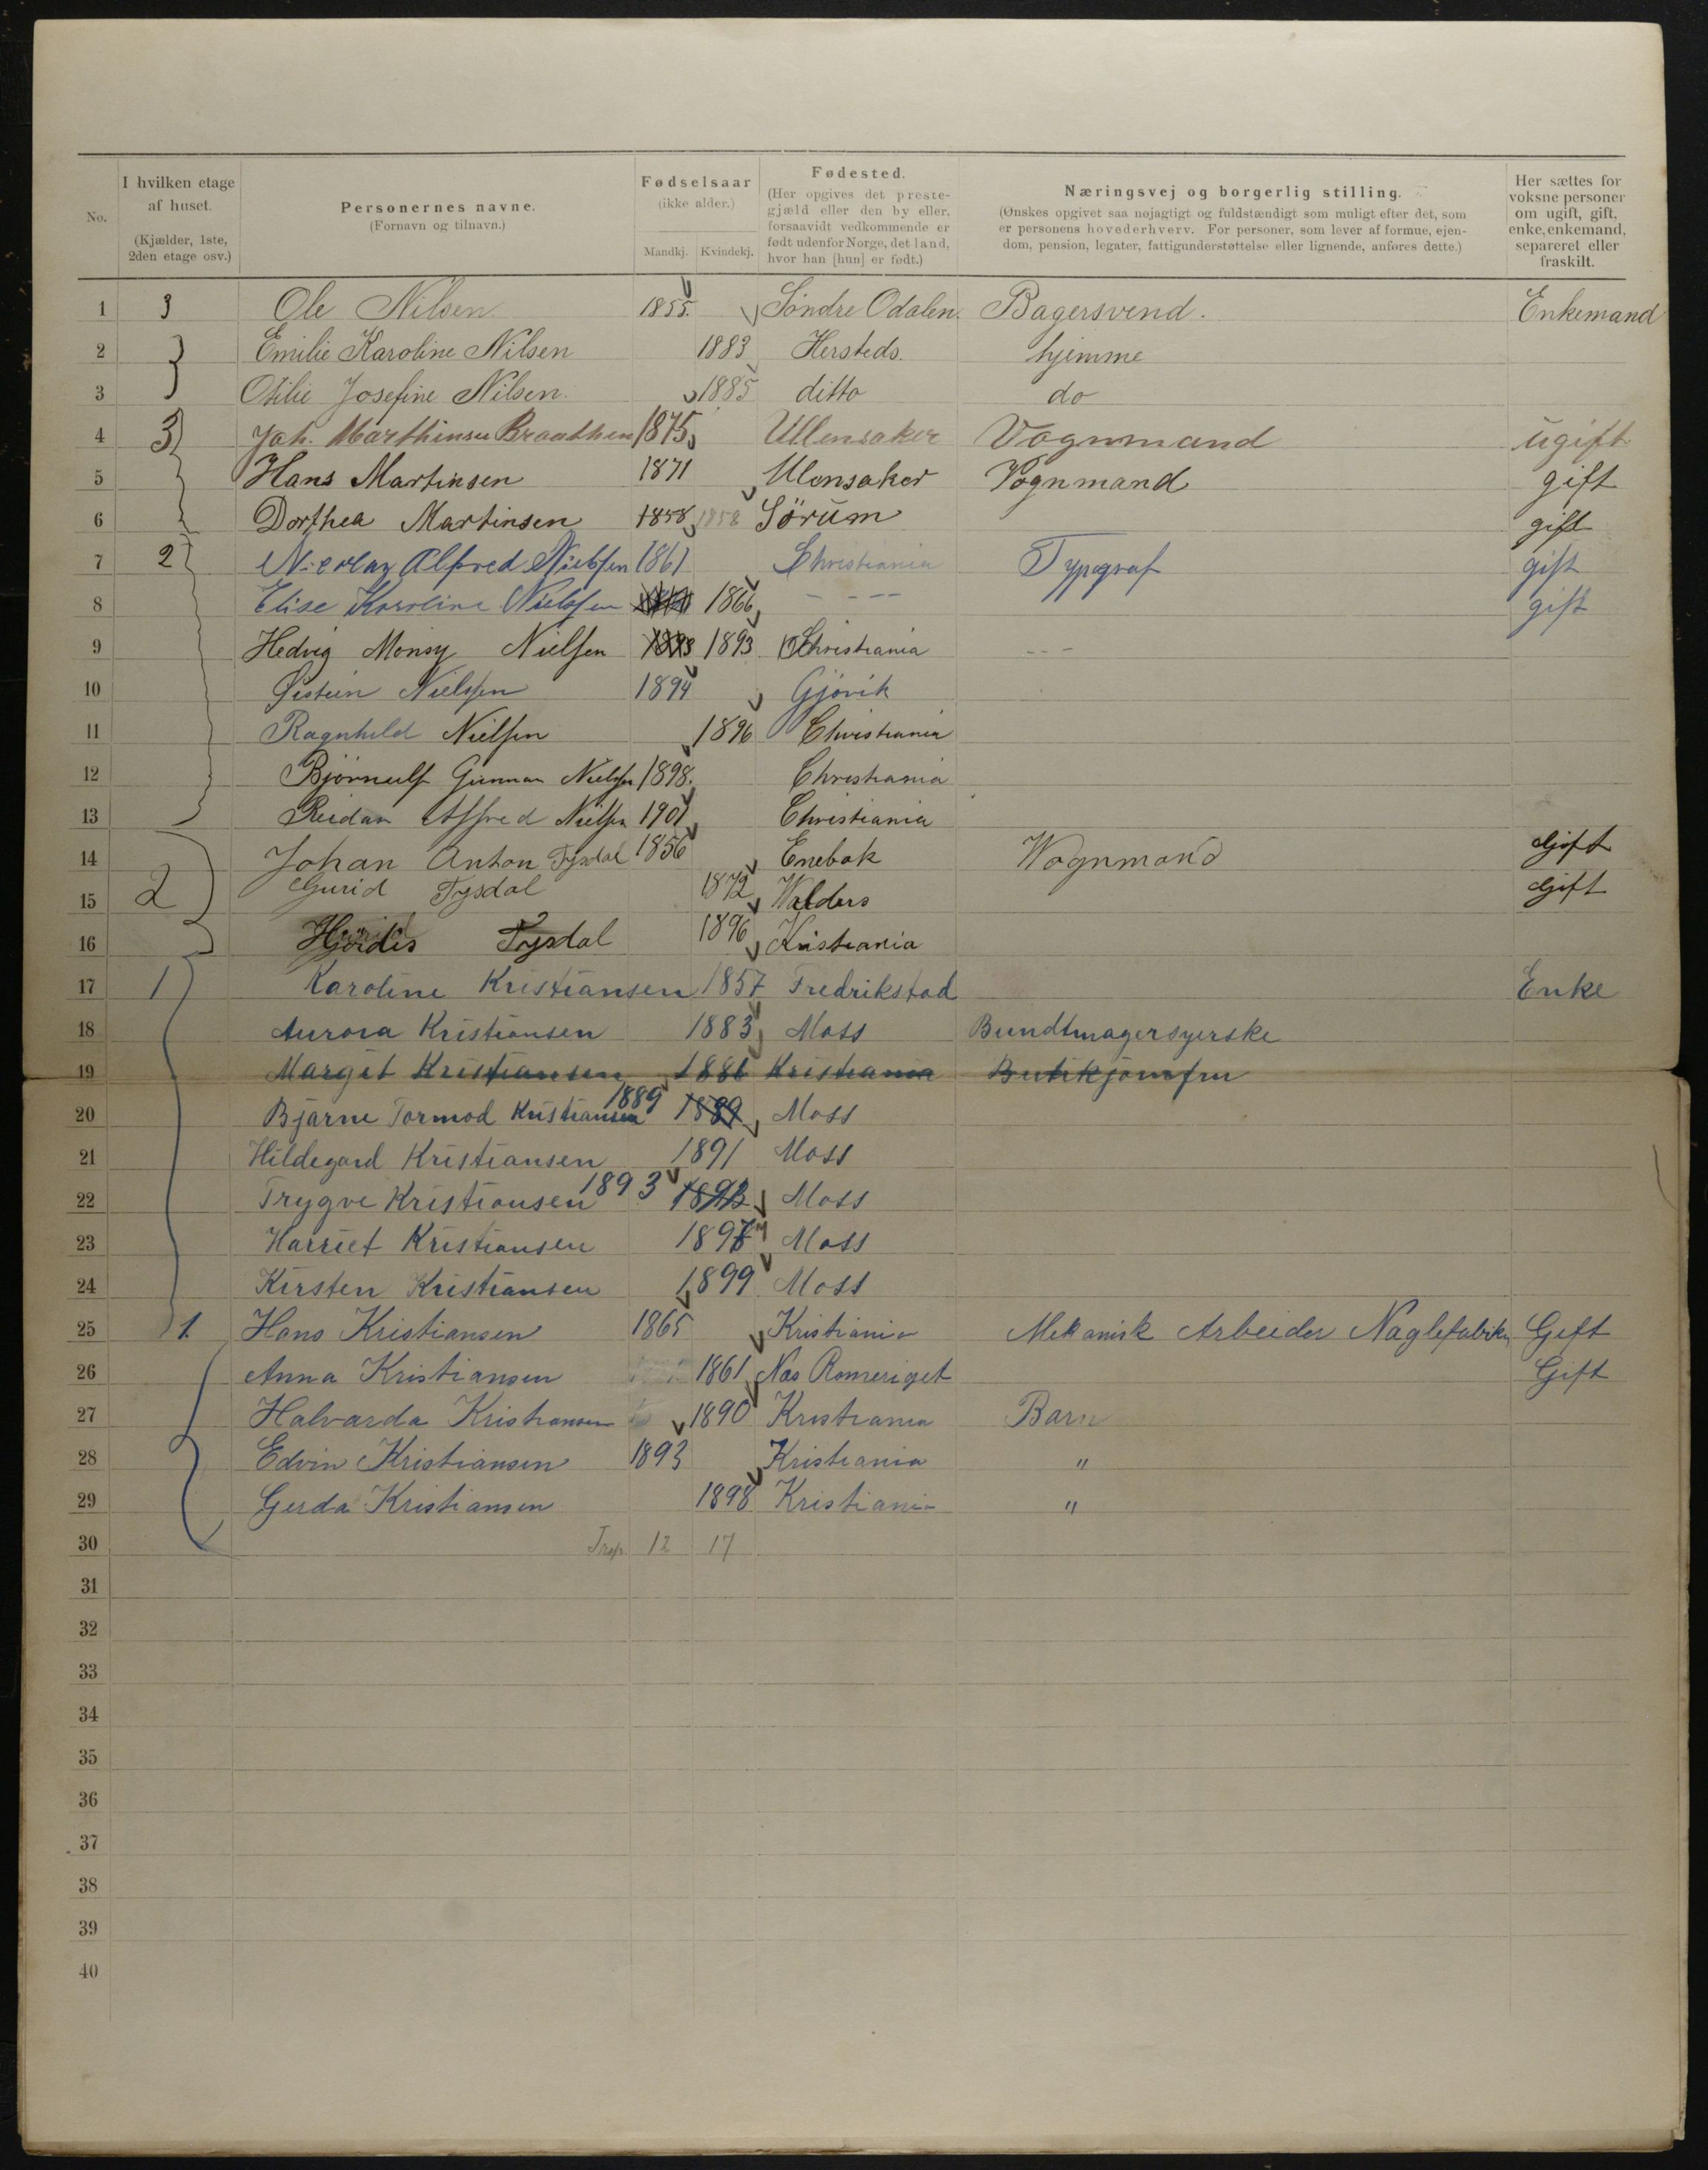 No.
I hvilken etage af huset.
(Kjælder, 1ste, 2den etage osv.)
Personernes navne.
(Fornavn og tilnavn.)
Fødselsaar
(ikke alder.)
Mandkj. Kvindekj.
Fødested.
(Her opgives det prestegjæld eller den by eller, forsaavidt vedkommende er født udenfor Norge, det land, hvor han [hun] er født.)
Næringsvej og borgerlig stilling.
(Ønskes opgivet saa nøjagtigt og fuldstændigt som muligt efter det, som er personens hovederhverv. For personer, som lever af formue, ejendom, pension, legater, fattigunderstøttelse eller lignende, anføres dette.)
Her sættes for voksne personer om ugift, gift, enke, enkemand, separeret eller fraskilt.
1 3 Ole Nilsen 1855. Søndre Odalen. Bagersvend. Enkemand
2 Emilie Karoline Nilsen 1883 Hersteds. hjemme
3 Otilie Josefine Nilsen. 1885 ditto do
4 3 Joh. Marthinsen Braathen 1875 Ullensaker Vognmand ugift
5 Hans Martinsen 1871 Ulensaker Vognmand gift
6 Dorthea Martinsen 1858 1858 Sørum gift
7 2 Nicolay Alfred Nielsen 1861 Christiania Typograf gift
8 Elise Karoline Nielsen 1866 – – – – gift
9 Hedvig Monsy Nielsen 1893 1893 Christiania – – –
10 Øistein Nielsen 1894 Gjøvik
11 Ragnhild Nielsen 1896 Christiania
12 Bjørnulf Gunnar Nielsen 1898. Christiania
13 Reidar Alfred Nielsen 1901 Christiania
14 Johan Anton Tysdal 1856 Enebak Wognmand Gift
15 2 Gurid Tysdal 1872 Walders Gift
16 Hjördis Tysdal 1896 Kristiania
17 1 Karoline Kristiansen 1857 Fredrikstad Enke
18 Aurora Kristiansen 1883 Moss Bundtmagersyerske
19 Margit Kristiansen 1886 Kristiania Butikjomfru
20 Bjarne Tormod Kristiansen 1889 1889 Moss
21 Hildegard Kristiansen 1891 Moss
22 Trygve Kristiansen 1893 1893 Moss
23 Harriet Kristiansen 1897 Moss
24 Kirsten Kristiansen 1899 Moss
25 1. Hans Kristiansen 1865 Kristiania Mekanisk Arbeider Naglefabrik Gift
26 Anna Kristiansen 1861 Nes Romeriget Gift
27 Halvarda Kristiansen 1890 Kristiania Barn
28 Edvin Kristiansen 1893 Kristiania "
29 Gerda Kristiansen 1898 Kristiania "
30 12 17
31
32
33
34
35
36
37
38
39
40